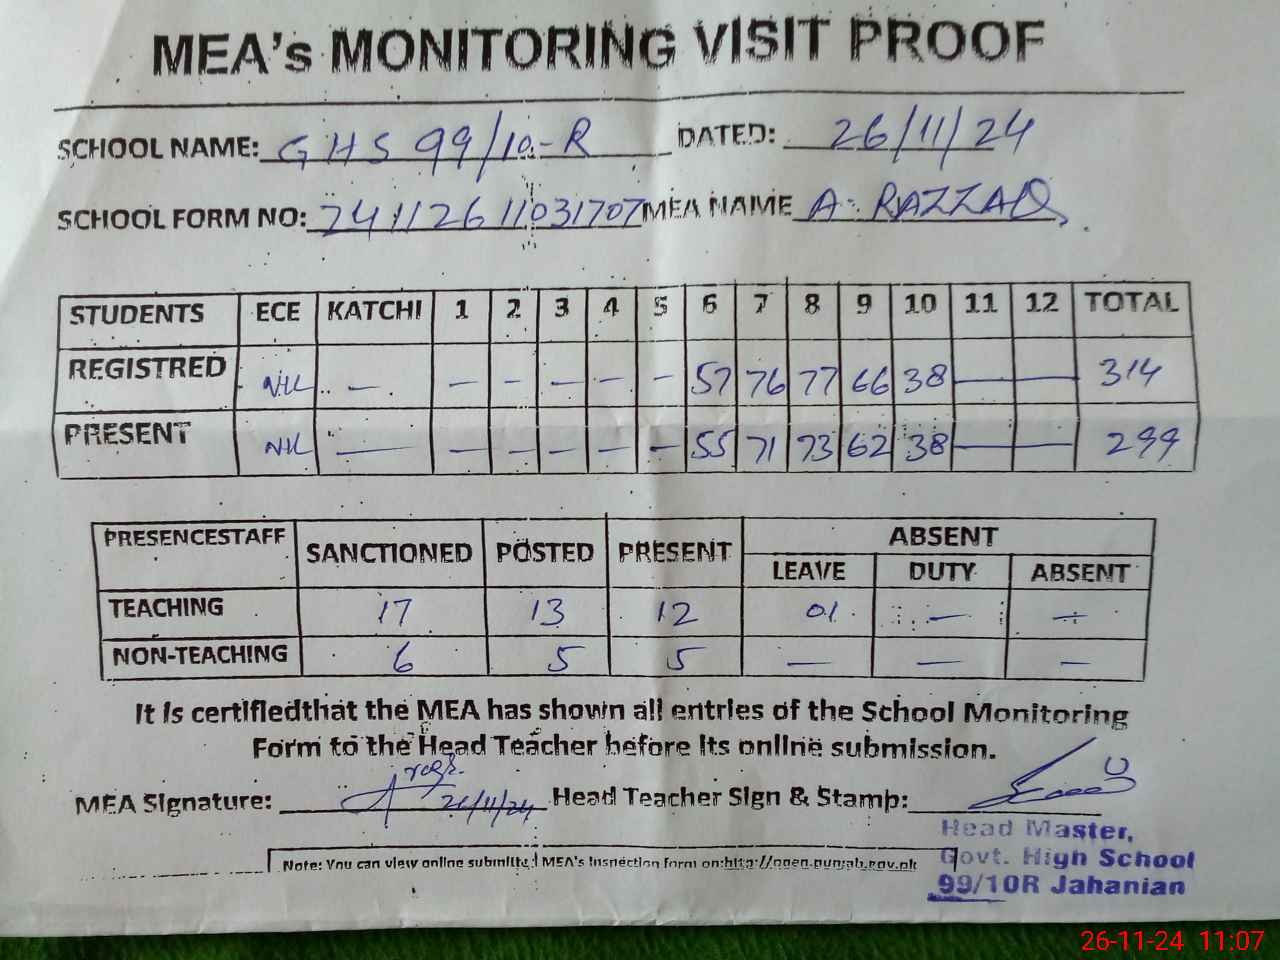 MEA's MONITORING VISIT PROOF
SCHOOL NAME: GHS 99/10-R DATED: 26/11/24
SCHOOL FORM NO: 24112611031707 MEA NAME A. RAZZAQ
STUDENTS ECE KATCHI 1 2 3 4 5 6 7 8 9 10 11 12 TOTAL
REGISTRED NIL — — — — — — 57 76 77 66 38 — — 314
PRESENT NIL — — — — — — 55 71 73 62 38 — — 299
PRESENCESTAFF SANCTIONED POSTED PRESENT ABSENT
LEAVE DUTY ABSENT
TEACHING 17 13 12 01 — —
NON-TEACHING 6 5 5 — — —
It is certifiedthat the MEA has shown all entries of the School Monitoring
Form to the Head Teacher before its online submission.
MEA Signature: 26/11/24 Head Teacher Sign & Stamp:
Head Master,
Govt. High School
99/10R Jahanian
Note: You can view online submitted MEA's inspection form on:
26-11-24 11:07